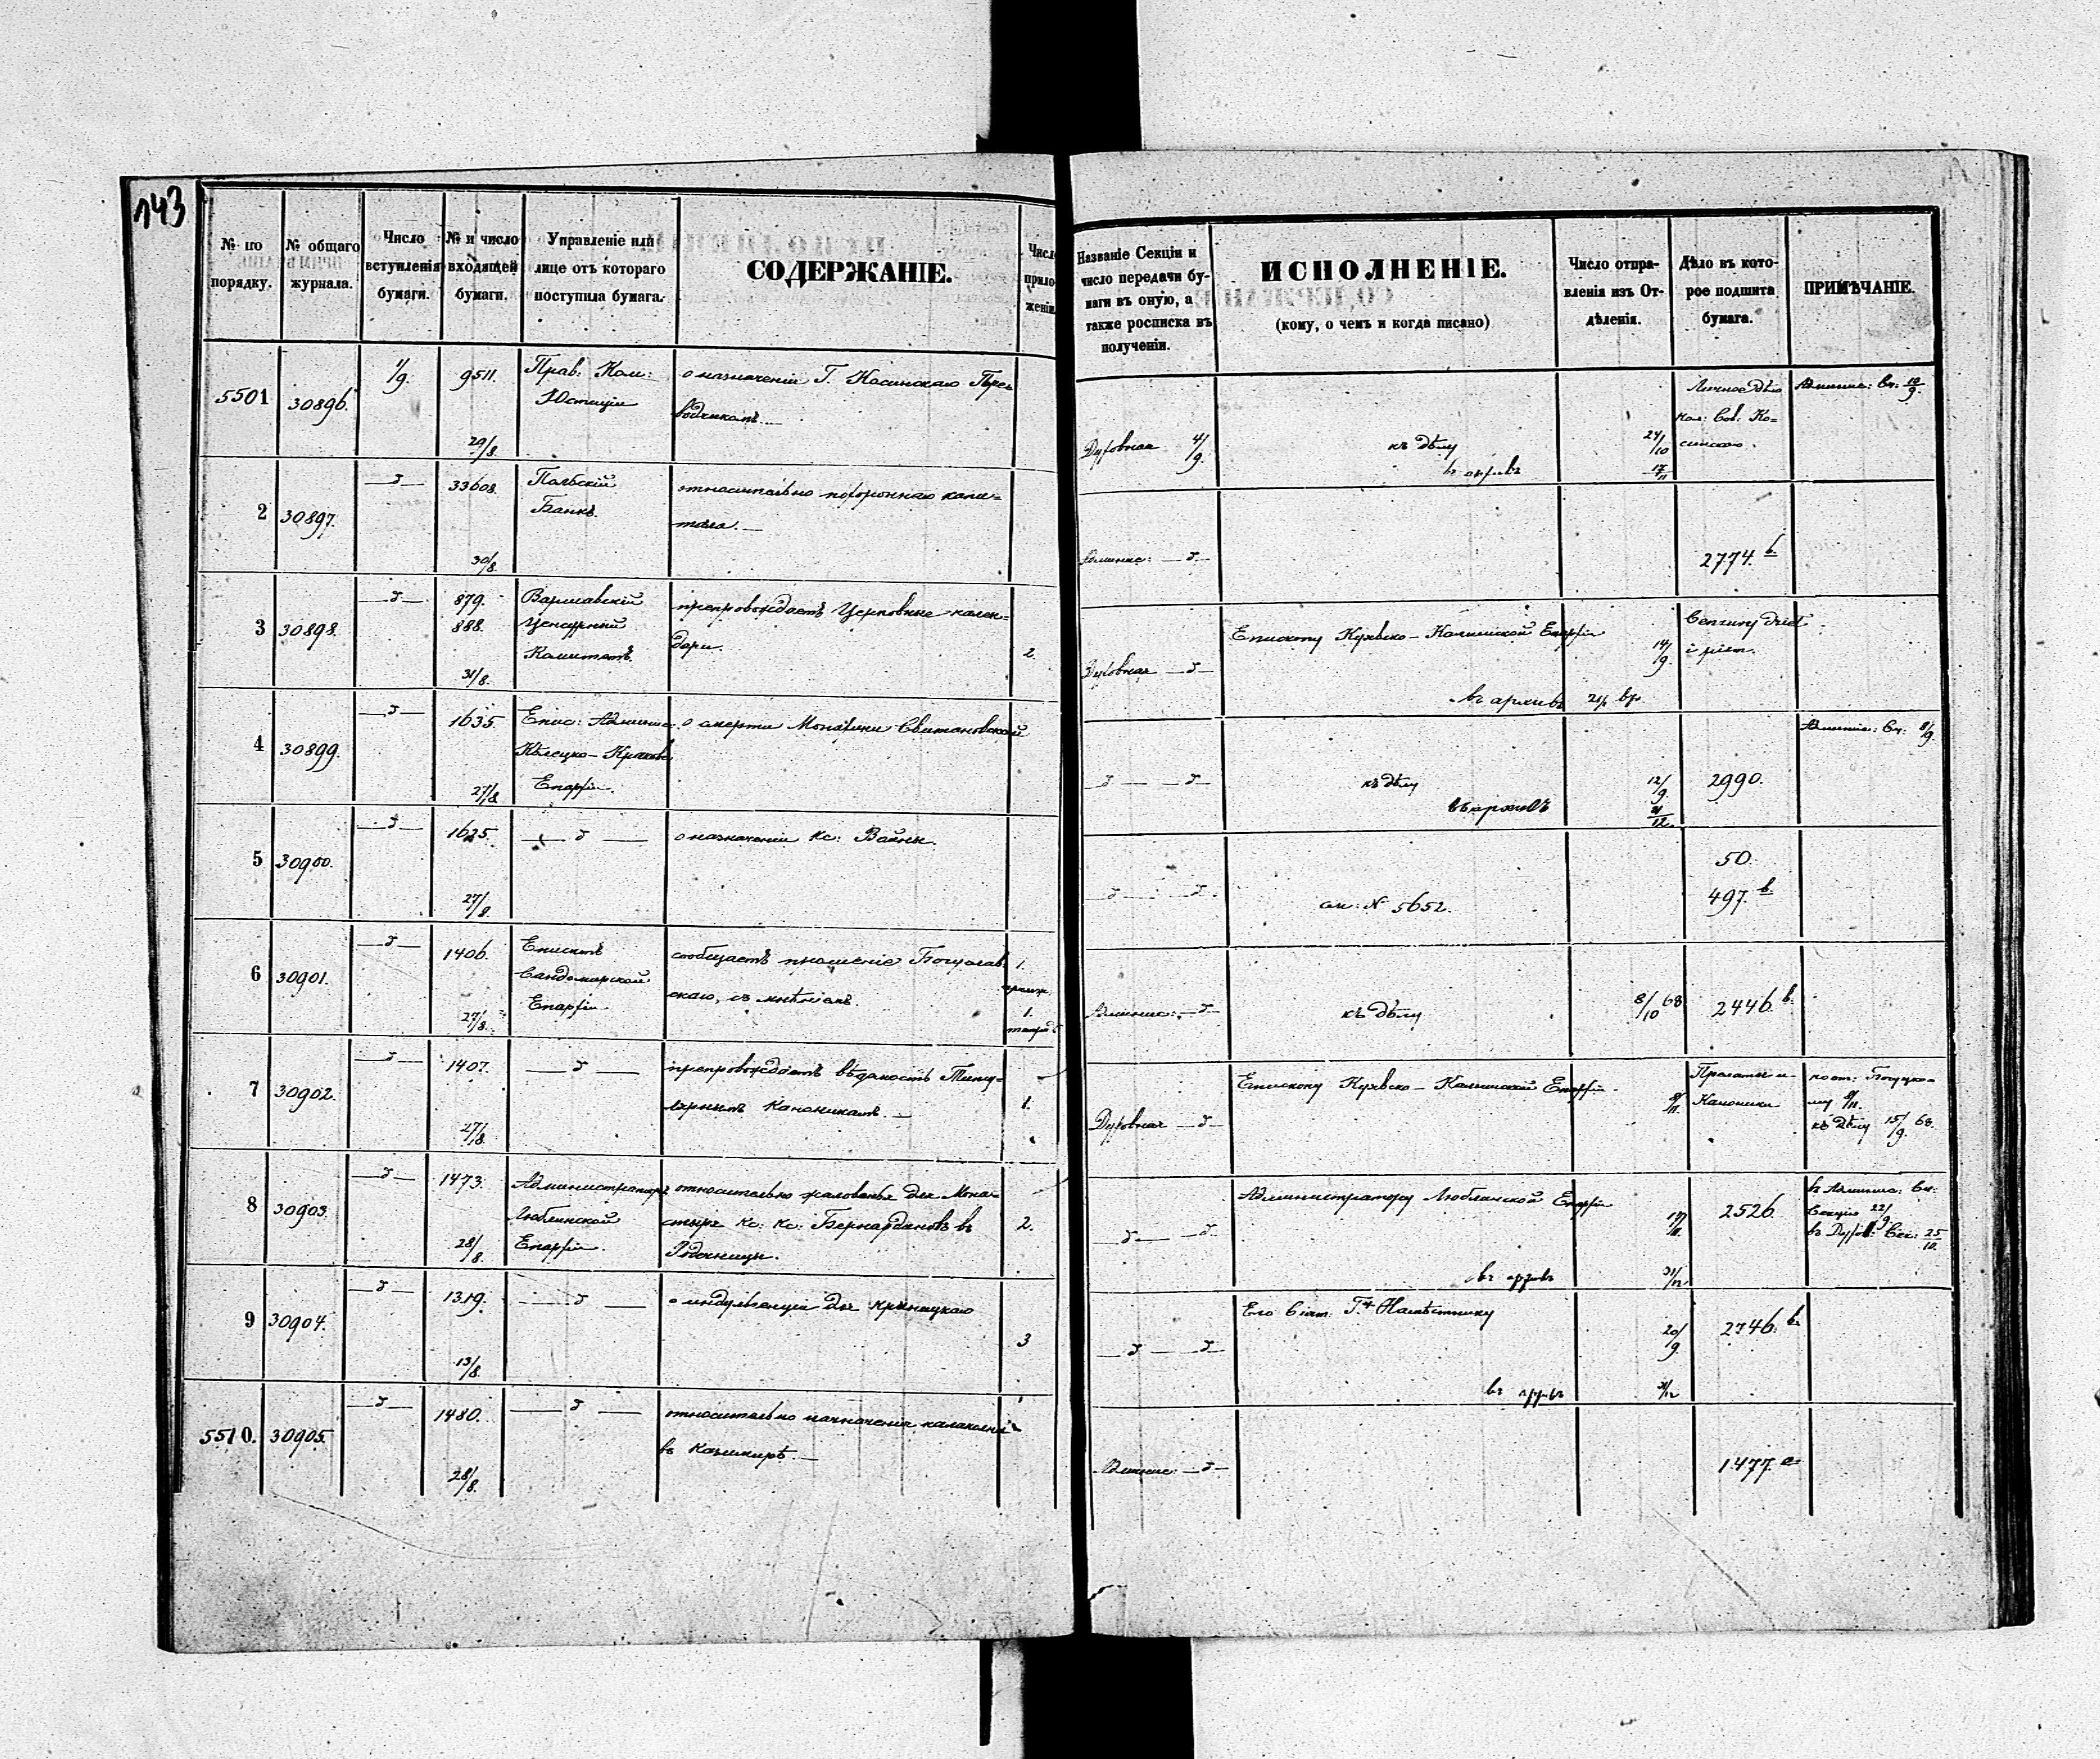 143
№ по порядку.
№ общаго журнала.
Число вступленія бумаги.
№ и число входящей бумаги.
Управленіе или лице отъ котораго поступила бумага.
СОДЕРЖАНІЕ.
Число приложеній
Названіе Секціи и число передачи бумаги въ оную, а также росписка въ полученіи.
ИСПОЛНЕНІЕ.
(кому, о чемъ и когда писано)
Число отправленія изъ Отдѣленія.
Дѣло въ которое подшита бумага.
ПРИМѢЧАНІЕ.
5501 30896. 1/9. 9511. 29/8.
Прав: Ком:
Юстиціи
о назначеніи Г. Косинскаго Пере-
водчикомъ.—
Духовная 4/9.
къ дѣлу 24/10
въ архивъ 17/11
Личное дѣло
Кол: Сов: Ко-
синскаго.
Админис: Сч: 10/9.
2 30897. 33608. 30/8.
Польскій
Банкъ.
относительно похороннаго капи-
тала.—
Админис:
2774. b.
3 30898. 879. 888. 31/8.
Варшавскій
Цензурный
Комитетъ.
препровождаетъ Церковные кален-
дари.
2.
Духовная
Епископу Куявско-Калишской Епархіи 14/9.
въ архивъ
Cenzury dzieł
i pism.
4 30899. 1635. 27/8.
Епис: Админис:
Кѣлецко-Краков:
Епархіи.
о смерти Монахини Свитановской
къ дѣлу 12/9
въ архивъ 31/12.
2990.
Админис: Сч: 8/9.
5 30900. 1625. 27/8.
о назначеніи Кс: Войны.
см: № 5652.
50.
497. b.
6 30901. 1406. 27/8.
Епископъ
Сандомирской
Епархіи
сообщаетъ прошеніе Богуслав-
скаго, съ мнѣніемъ.
1.
1.
Админис:
къ дѣлу 8/10 68
2446. b.
7 30902. 1407. 27/8.
препровождаетъ вѣдомость Титу-
лярнымъ Каноникамъ.—
1.
Духовная
Епископу Куявско-Калишской Епархіи
Прелаты и
Каноники
къ дѣлу 15/9. 68.
8 30903. 1473. 28/8.
Администраторъ
Люблинской
Епархіи.
относительно жалованья для Мона-
стыря Кс: Кс: Бернардиновъ въ
Радечницы.
2.
Администратору Люблинской Епархіи
въ архивъ 31/12
2526.
въ Админис: Сч:
Секцію 22/9
въ Духов: Сек: 25/10.
9 30904. 1319. 13/8.
о индульгенціи для
3
Его Сіят: Г-ну Намѣстнику 20/9.
въ архивъ 31/12
2746. b.
5510. 30905. 1480. 28/8.
относительно назначенія
въ Казимирѣ.—
Админис:
1477. a.